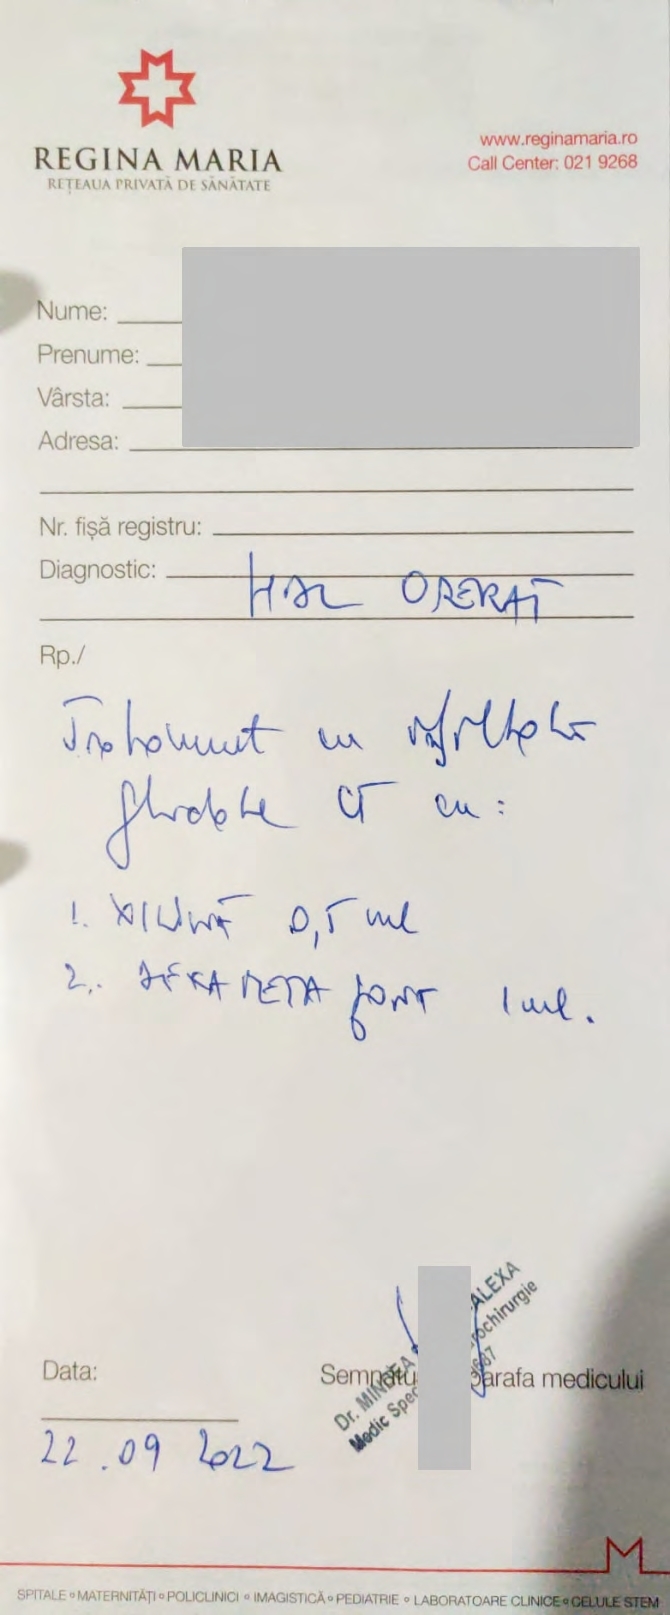 REGINA MARIA
REȚEAUA PRIVATĂ DE SĂNĂTATE
www.reginamaria.ro
Call Center: 021 9268
Nume:
Prenume:
Vârsta:
Adresa:
Nr. fișă registru:
Diagnostic: OPERAT
Rp./
Tratament cu infiltratii
ghidate CT cu:
1. XILINĂ 0,5 ml
2. DEXAMETAZONĂ 1 ml.
Data:
22.09 2022
Dr. ALEXA
Medic
parafa medicului
SPITALE • MATERNITĂȚI • POLICLINICI • IMAGISTICĂ • PEDIATRIE • LABORATOARE CLINICE • CELULE STEM